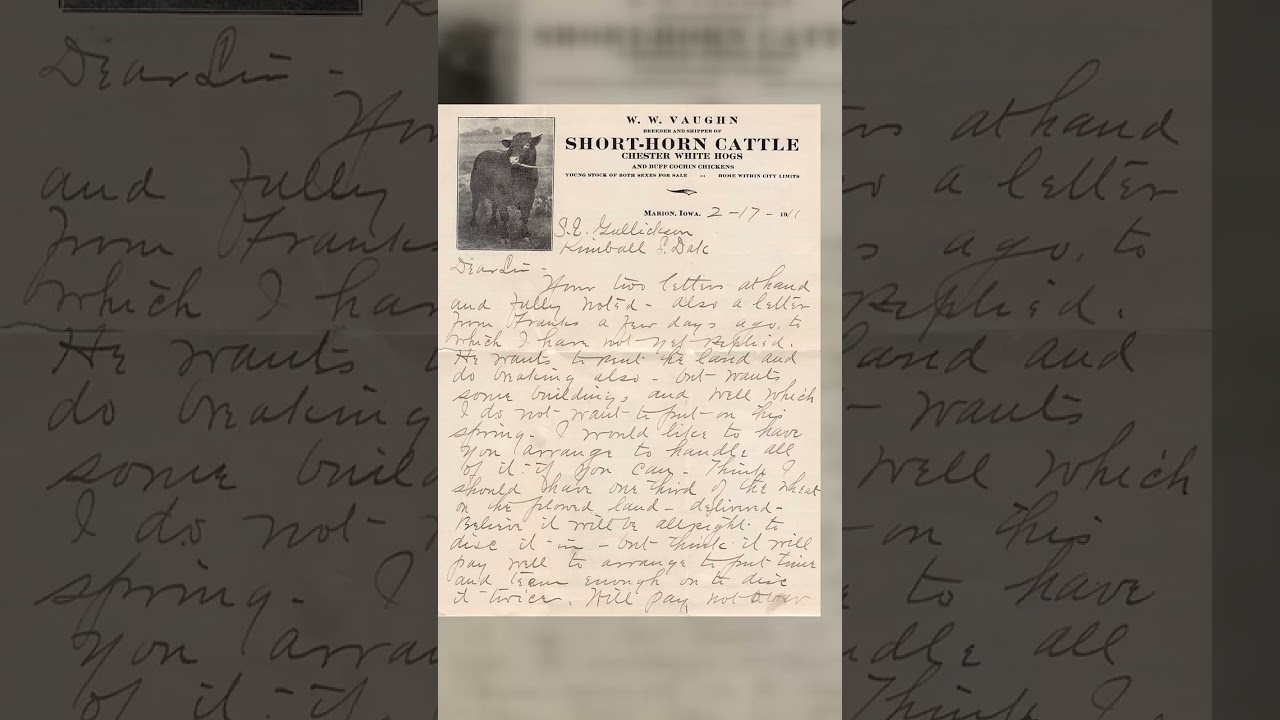 W. W. VAUGHN
BREEDER AND SHIPPER OF
SHORT-HORN CATTLE
CHESTER WHITE HOGS
AND BUFF COCHIN CHICKENS
YOUNG STOCK OF BOTH SEXES FOR SALE ... HOME WITHIN CITY LIMITS
MARION, IOWA, 2-17-1911
S.E. Gullickson
Kimball S. Dak
Dear Sir -
Your two letters at hand
and fully noted - Also a letter
from Franks a few days ago, to
which I have not yet replied.
He wants to rent the land and
do breaking also - but wants
some buildings and well which
I do not want to put on this
spring. I would like to have
you arrange to handle all
of it if you can. Think I
should have one third of the wheat
on the plowed land - delivered -
Believe it will be allright to
disc it in - but think it will
pay well to arrange to put time
and team enough on to disc
it twice. Will pay not over